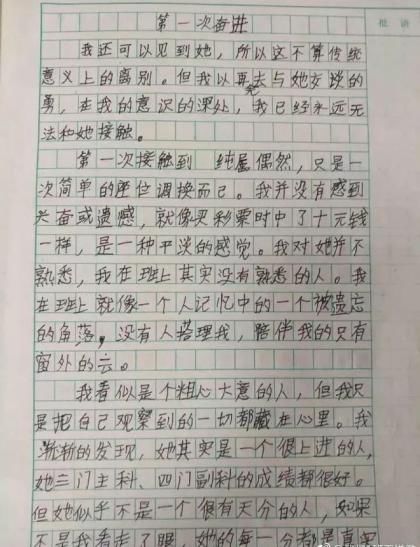 批 语
第一次奋进
我还可以见到她，所以这不算传统
意义上的离别。但我以再无去与她交谈的
勇，在我的意识的深处，我已经永远无
法和她接触。
第一次接触到 纯属偶然，只是一
次简单的座位调换而已。我并没有感到
兴奋或遗憾，就像买彩票时中了十元钱
一样，是一种平淡的感觉。我对她并不
熟悉，我在班上其实没有熟悉的人。我
在班上就像一个人记忆中的一个被遗忘
的角落，没有人搭理我，陪伴我的只有
窗外的云。
我看似是个粗心大意的人，但我只
是把自己观察到的一切都藏在心里。我
渐渐的发现，她其实是一个很上进的人，
她三门主科、四门副科的成绩都很好。
但她似乎不是一个很有天分的人，如果
不是我看走了眼，她的每一分都是真实